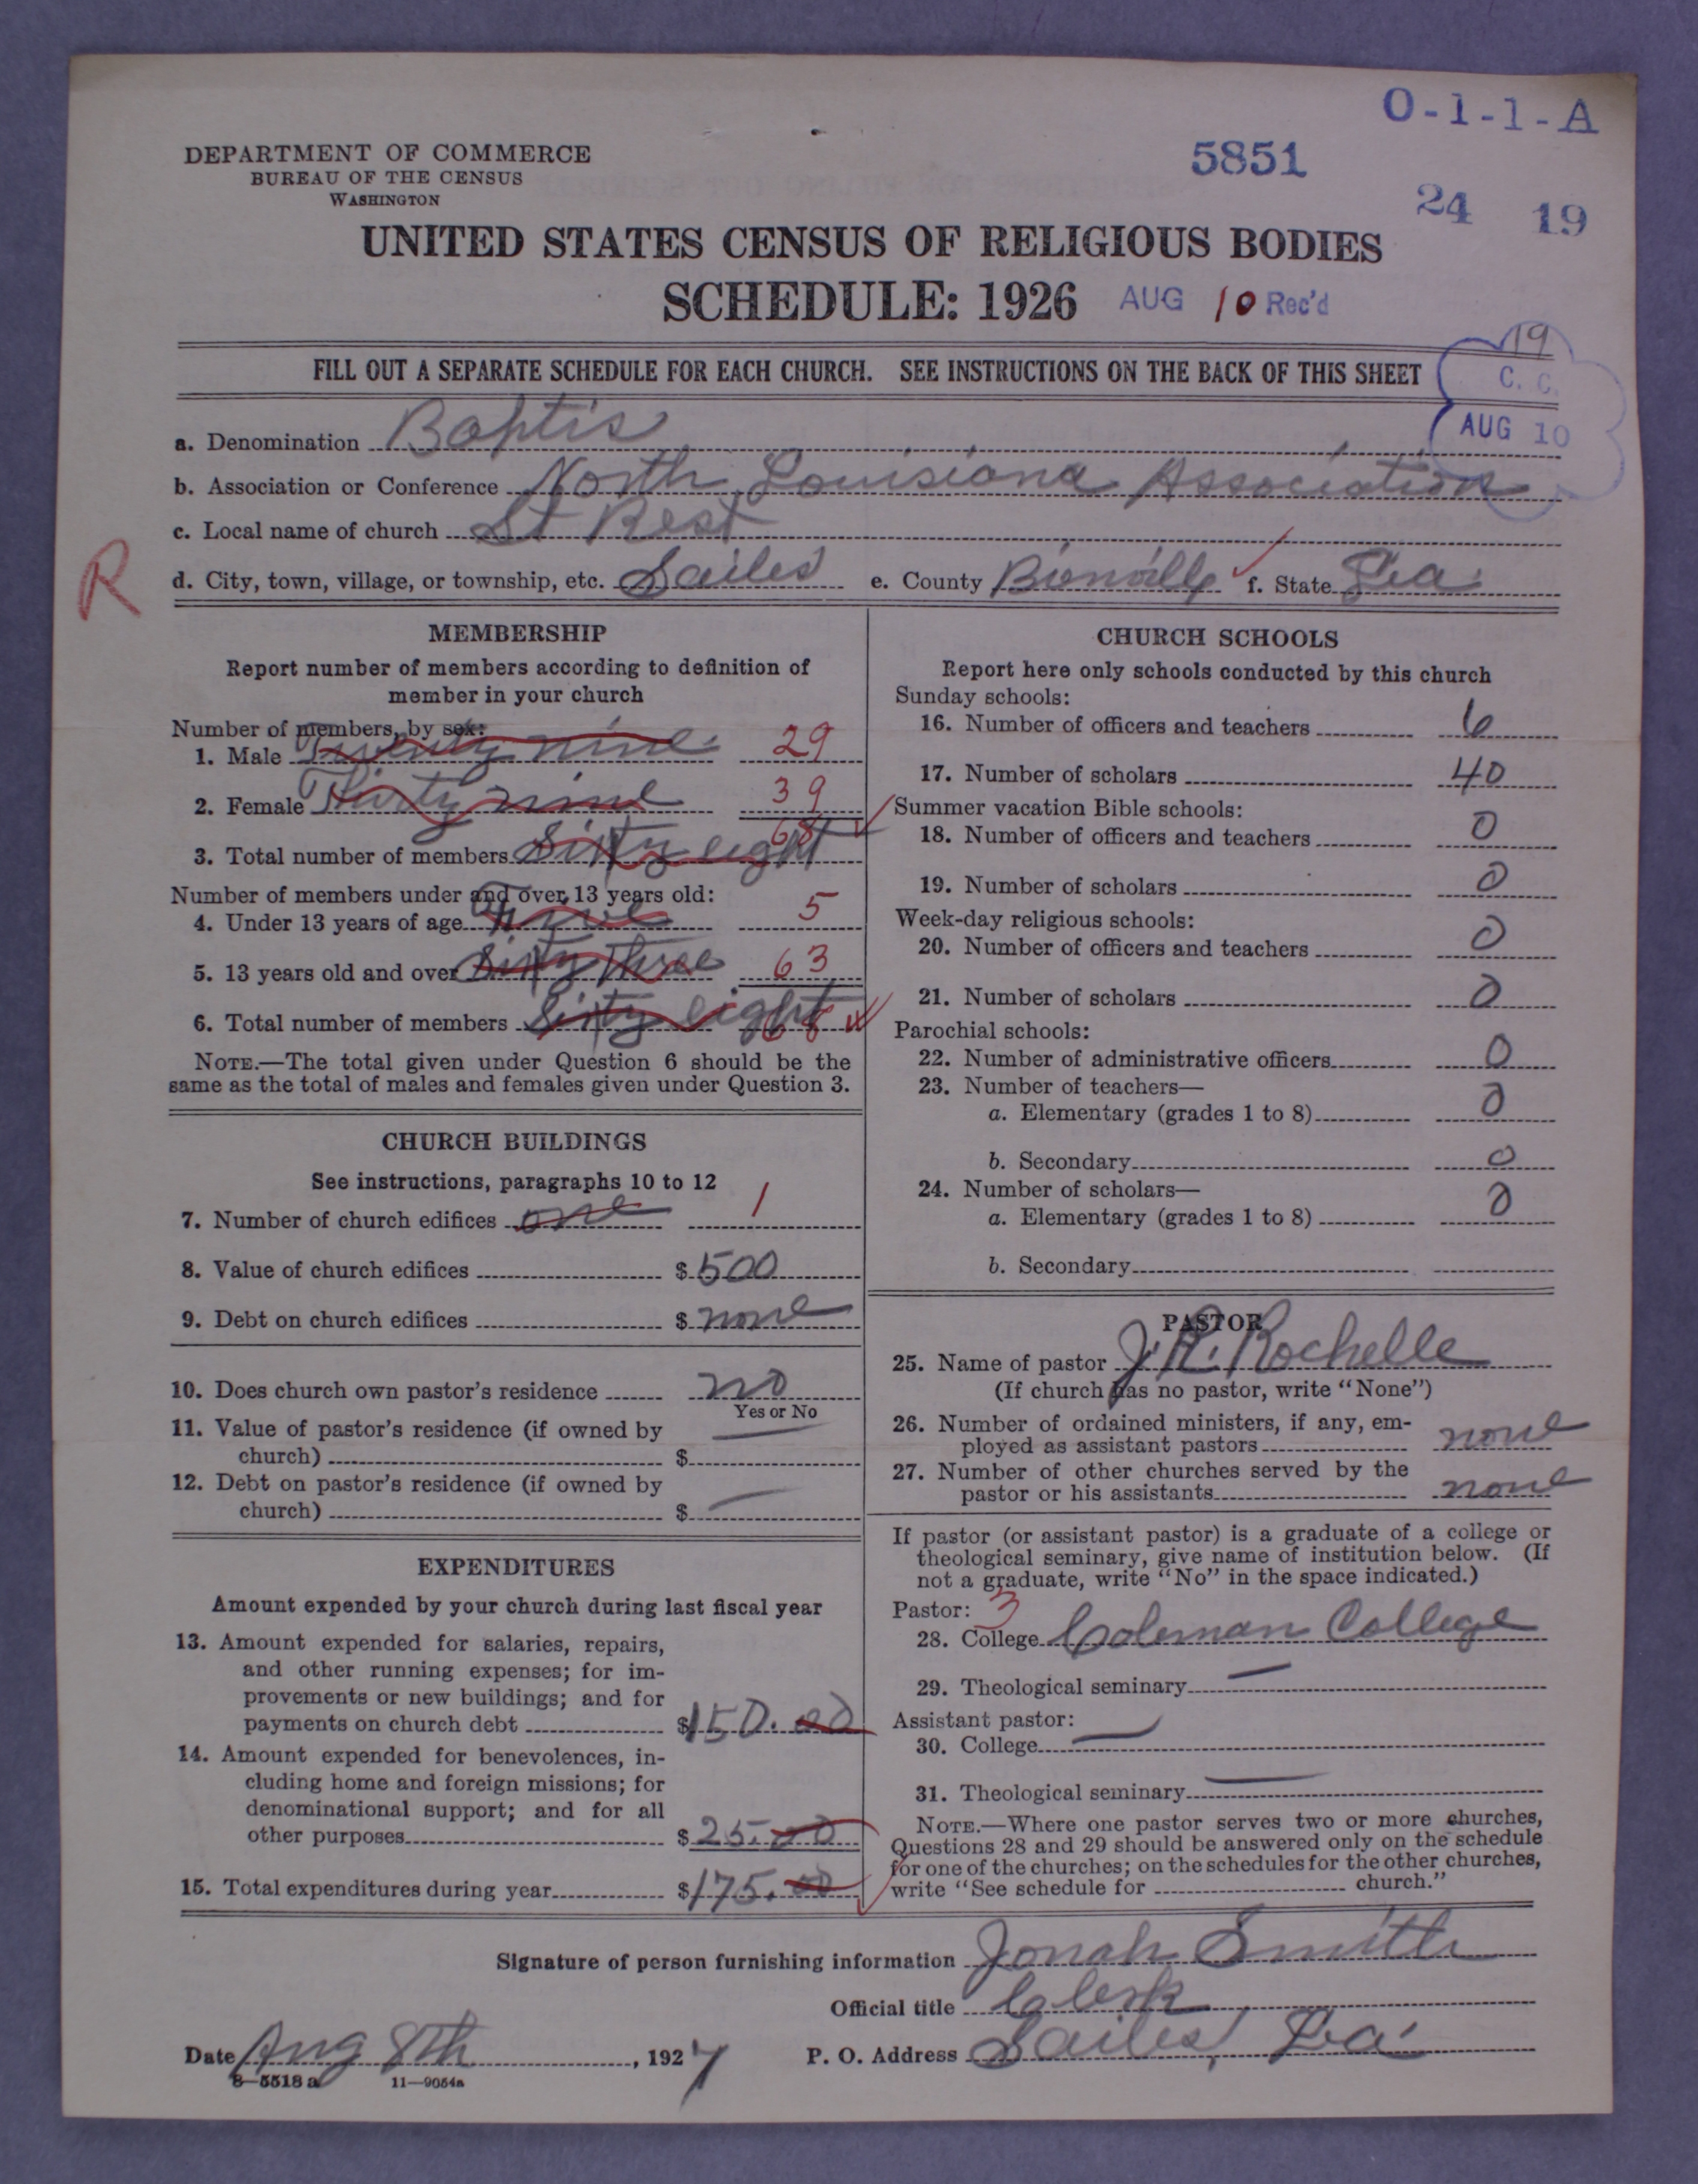 O-1-1-A
DEPARTMENT OF COMMERCE
BUREAU OF THE CENSUS
WASHINGTON
5851
24 19
UNITED STATES CENSUS OF RELIGIOUS BODIES
SCHEDULE: 1926 AUG 10 Rec'd
19
FILL OUT A SEPARATE SCHEDULE FOR EACH CHURCH. SEE INSTRUCTIONS ON THE BACK OF THIS SHEET
C. C.
AUG 10
a. Denomination Baptis
b. Association or Conference North Louisiana Association
c. Local name of church St Rest
R
d. City, town, village, or township, etc. Sailes e. County Bienville f. State La
MEMBERSHIP
Report number of members according to definition of
member in your church
Number of members, by sex:
1. Male Twenty nine 29
2. Female Thirty nine 39
3. Total number of members Sixty eight 68
Number of members under and over 13 years old:
4. Under 13 years of age Five 5
5. 13 years old and over Sixty Three 63
6. Total number of members Sixty eight 68
NOTE.—The total given under Question 6 should be the
same as the total of males and females given under Question 3.
CHURCH BUILDINGS
See instructions, paragraphs 10 to 12
7. Number of church edifices one 1
8. Value of church edifices $ 500
9. Debt on church edifices $ none
10. Does church own pastor's residence no
Yes or No
11. Value of pastor's residence (if owned by
church) $ —
12. Debt on pastor's residence (if owned by
church) $ —
EXPENDITURES
Amount expended by your church during last fiscal year
13. Amount expended for salaries, repairs,
and other running expenses; for im-
provements or new buildings; and for
payments on church debt $150.00
14. Amount expended for benevolences, in-
cluding home and foreign missions; for
denominational support; and for all
other purposes $25.00
15. Total expenditures during year $175.00
CHURCH SCHOOLS
Report here only schools conducted by this church
Sunday schools:
16. Number of officers and teachers 6
17. Number of scholars 40
Summer vacation Bible schools:
18. Number of officers and teachers 0
19. Number of scholars 0
Week-day religious schools:
20. Number of officers and teachers 0
21. Number of scholars 0
Parochial schools:
22. Number of administrative officers 0
23. Number of teachers—
a. Elementary (grades 1 to 8) 0
b. Secondary 0
24. Number of scholars—
a. Elementary (grades 1 to 8) 0
b. Secondary
PASTOR
25. Name of pastor J. R. Rochelle
(If church has no pastor, write "None")
26. Number of ordained ministers, if any, em-
ployed as assistant pastors none
27. Number of other churches served by the
pastor or his assistants none
If pastor (or assistant pastor) is a graduate of a college or
theological seminary, give name of institution below. (If
not a graduate, write "No" in the space indicated.)
Pastor: 3
28. College Coleman College
29. Theological seminary —
Assistant pastor:
30. College —
31. Theological seminary —
NOTE.—Where one pastor serves two or more churches,
Questions 28 and 29 should be answered only on the schedule
for one of the churches; on the schedules for the other churches,
write "See schedule for church."
Signature of person furnishing information Jonah Smith
Official title Clerk
Date Aug 8th, 1927 P. O. Address Sailes, La.
8—5518 a 11—9054a